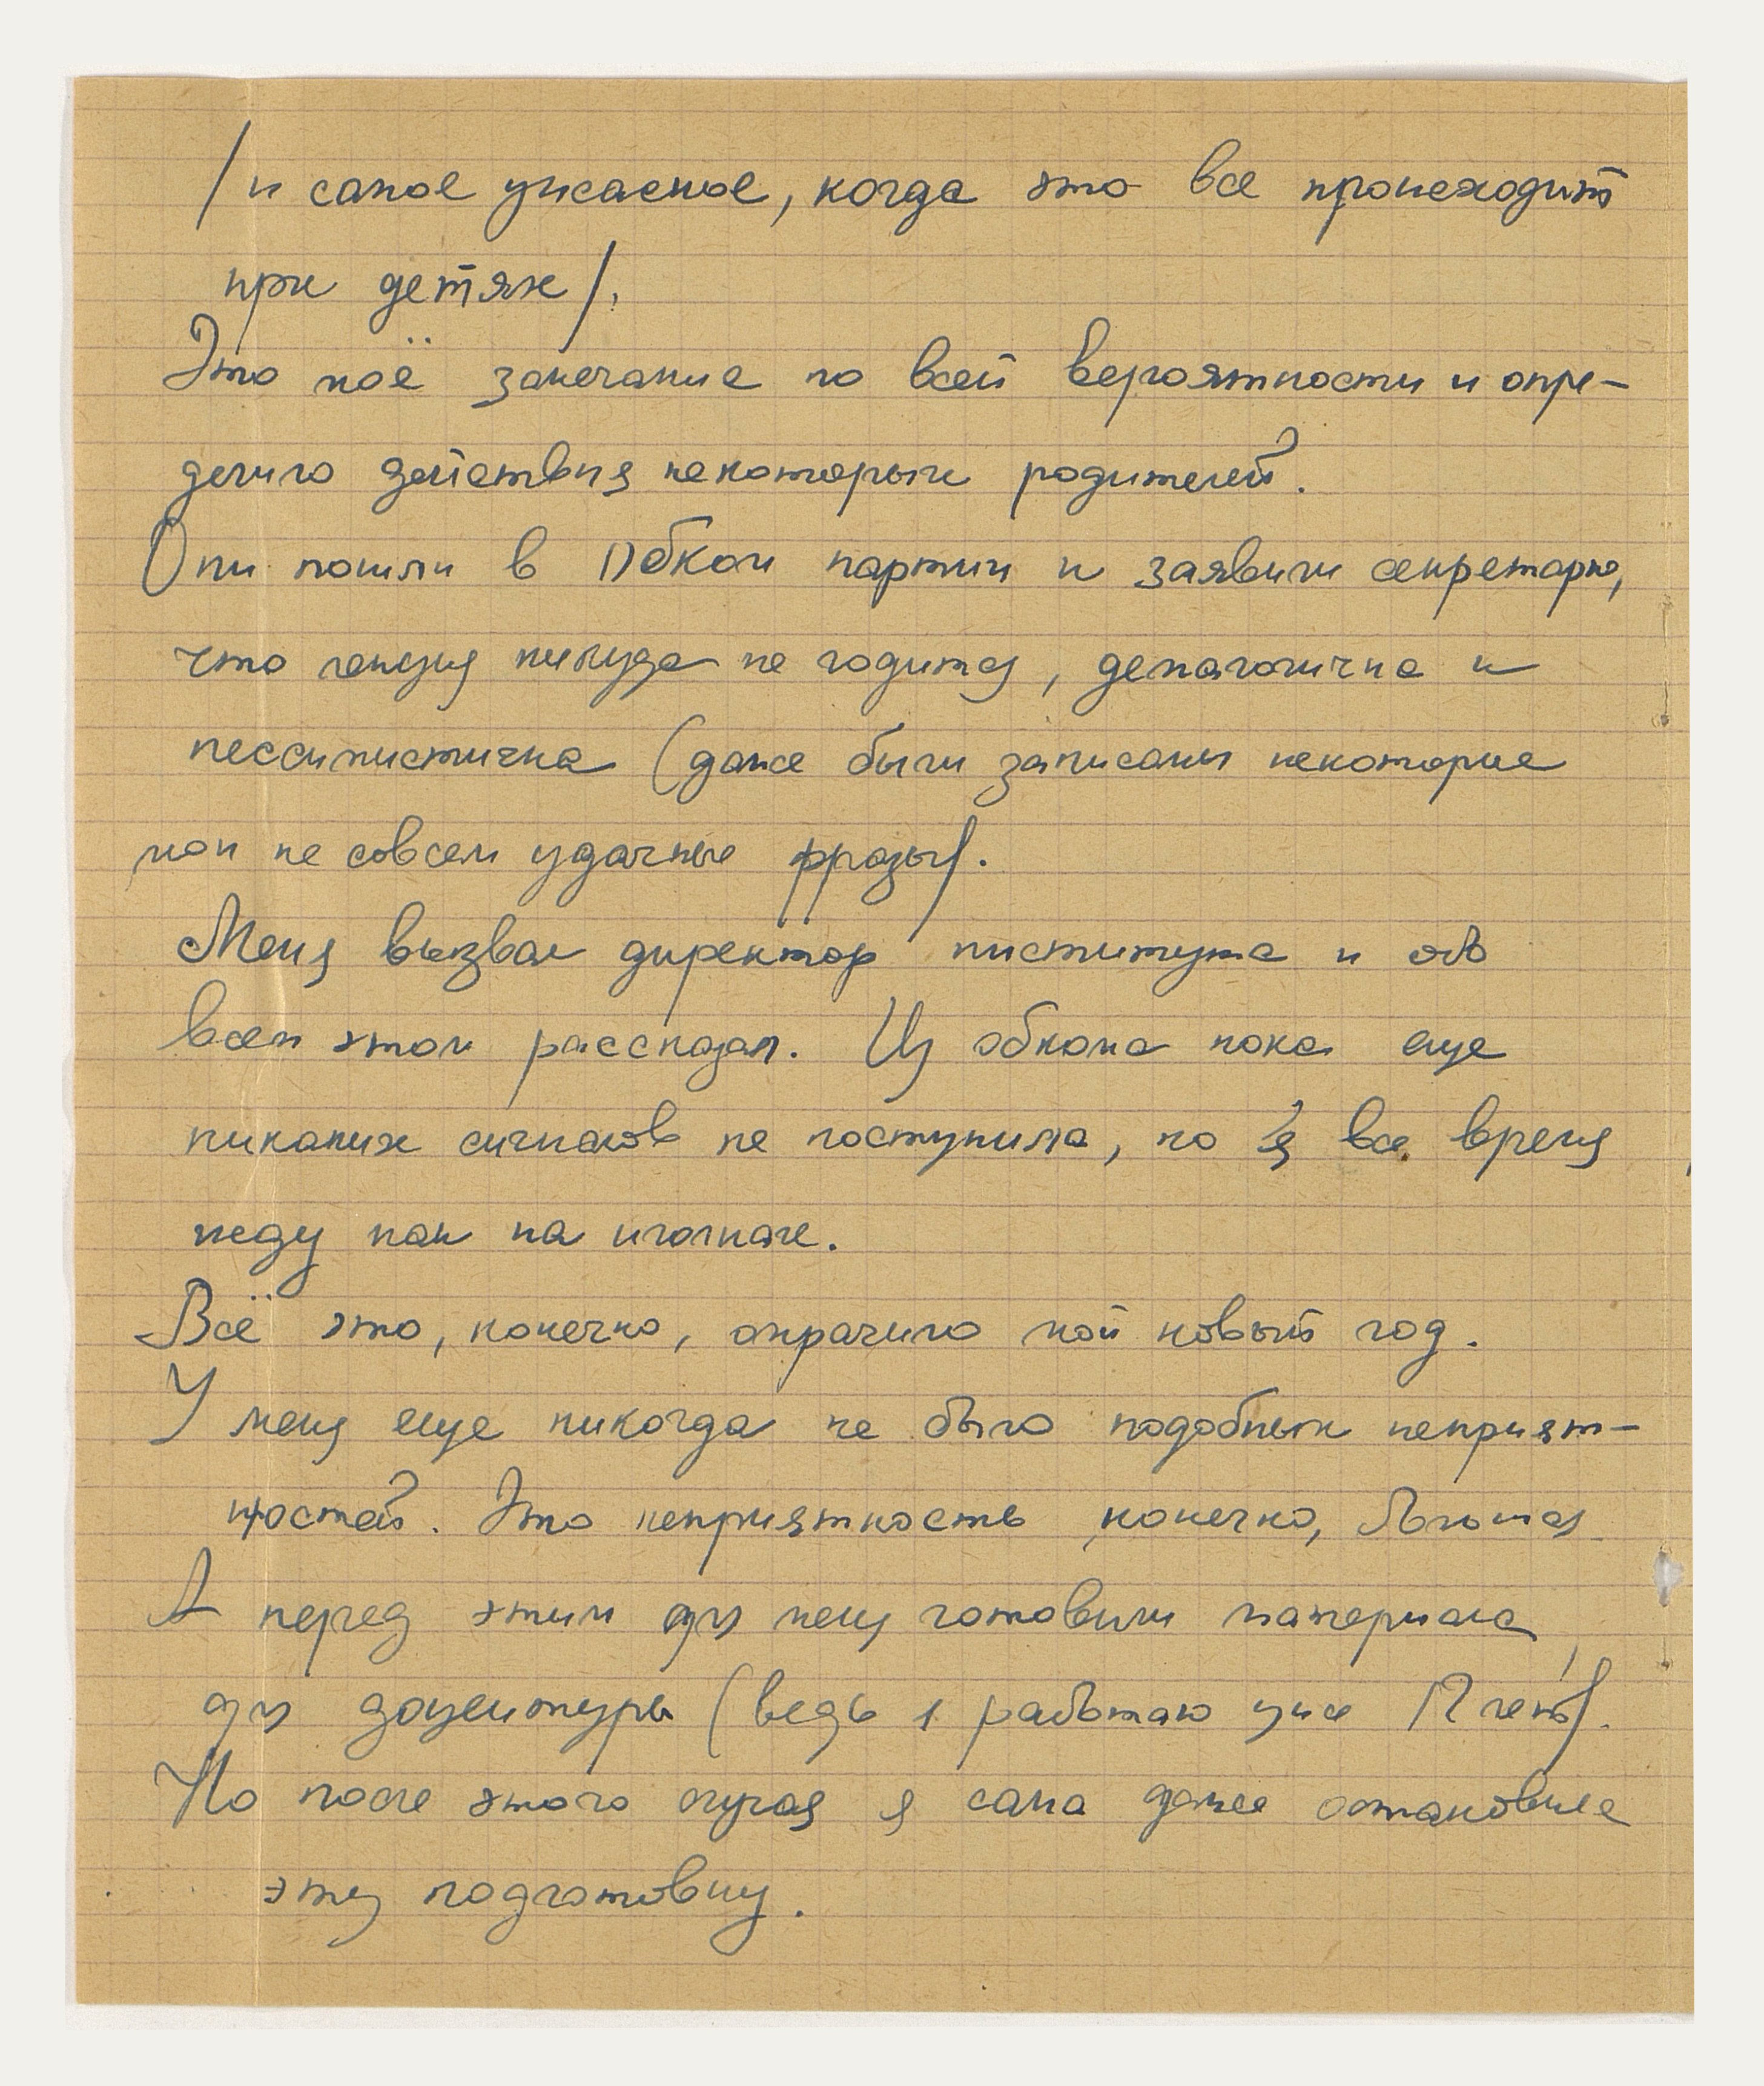 /и самое ужасное, когда это все происходит
при детях/.
Это моё замечание по всей вероятности и опре-
делило действия некоторых родителей.
Они пошли в Обком партии и заявили секретарю,
что лекция никуда не годится, демагогична и
пессимистична (даже были записаны некоторые
мои не совсем удачные фразы/.
Меня вызвал директор института и об
всем этом рассказал. Из обкома пока еще
никаких сигналов не поступило, но я все время
жду как на иголках.
Всё это, конечно, омрачило мой новый год.
У меня еще никогда не было подобных неприят-
ностей. Это неприятность, конечно, большая
А перед этим для меня готовили материалы
для доцентуры (ведь я работаю уже 12 лет/.
Но после этого случая я сама даже остановила
эту подготовку.